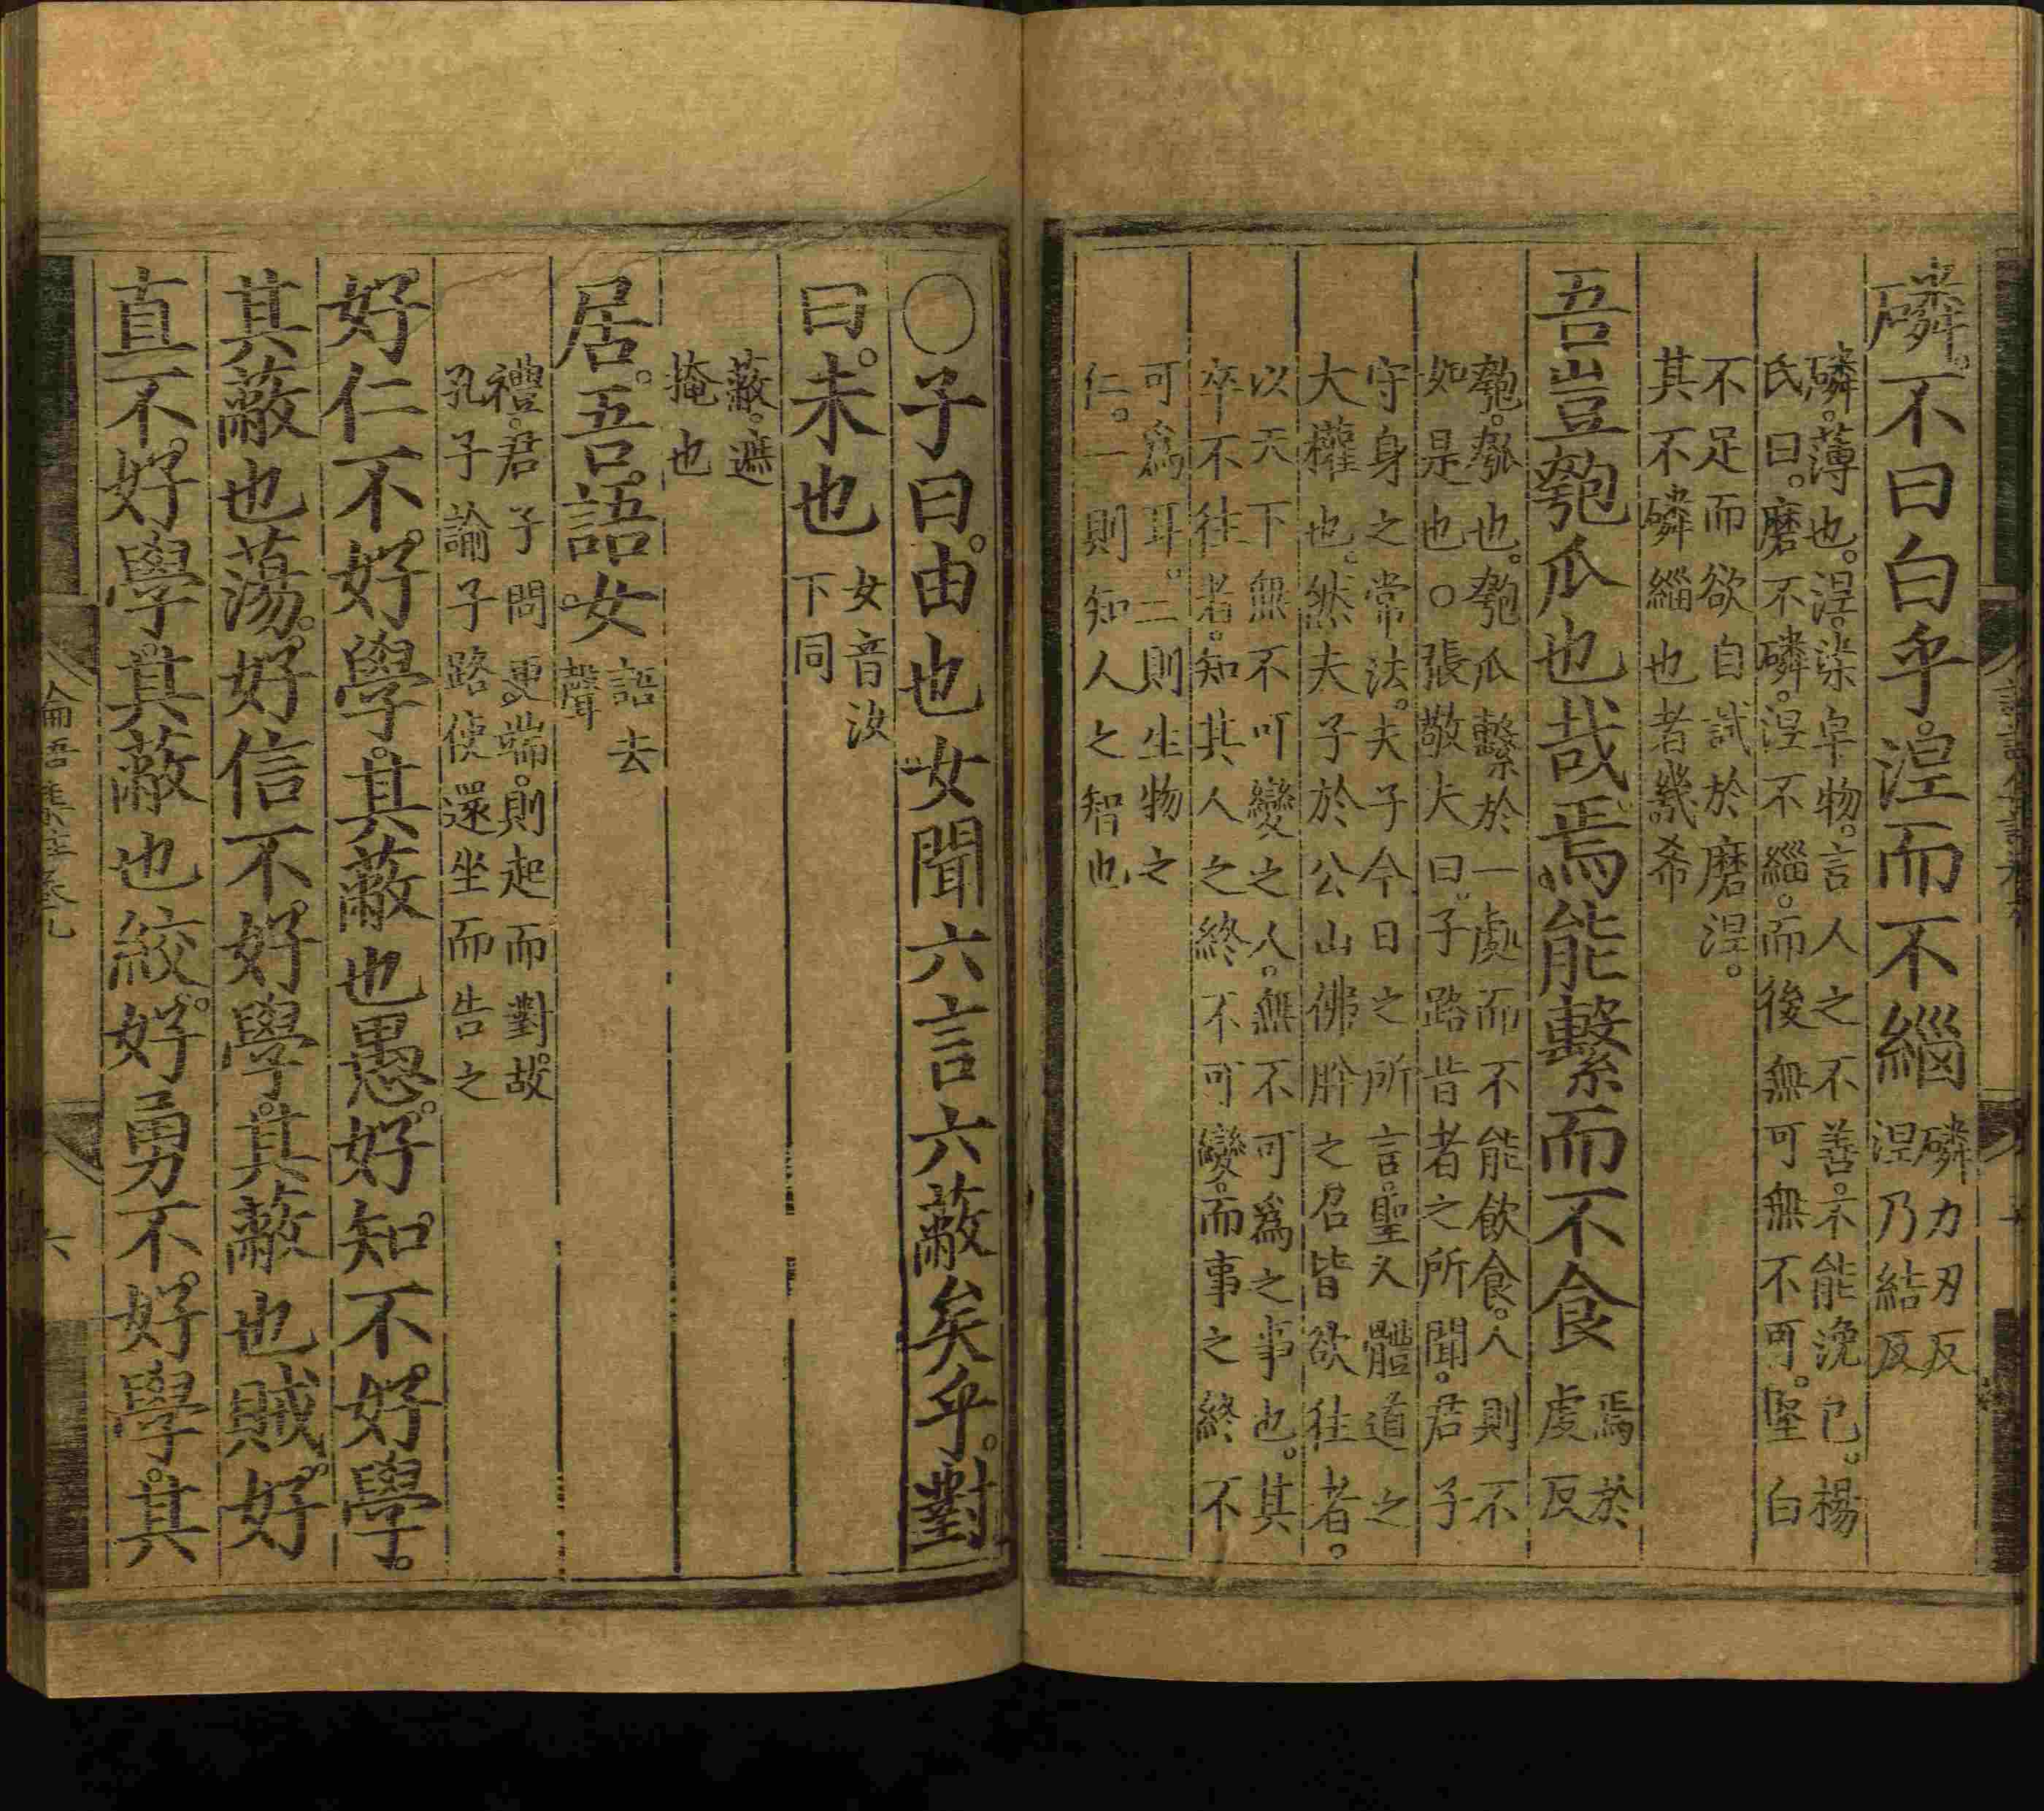 磷。不曰白乎。涅而不緇
磷力刃反
涅乃結反
磷。薄也。涅。染皁物。言人之不善。不能浼己。楊
氏曰。磨不磷。涅不緇。而後無可無不可。堅白
不足而欲自試於磨涅。
其不磷緇也者幾希
吾豈匏瓜也哉焉能繫而不食
焉於
虔反
匏。瓠也。匏瓜繫於一處而不能飲食。人則不
如是也○張敬夫曰。子路昔者之所聞。君子
守身之常法。夫子今日之所言。聖人體道之
大權也。然夫子於公山佛肸之召皆欲往者。
以天下無不可變之人。無不可爲之事也。其
卒不往者。知其人之終不可變。而事之終不
可爲耳。一則生物之
仁。一則知人之智也
○子曰。由也女聞六言六蔽矣乎。對
曰。未也
女音汝
下同
蔽。遮
掩也
居。吾語女
語去
聲
禮。君子問更端。則起而對。故
孔子諭子路使還坐而告之
好仁不好學。其蔽也愚。好知不好學。
其蔽也蕩。好信不好學。其蔽也賊。好
直不好學。其蔽也絞。好勇不好學。其
論語集註卷九
六